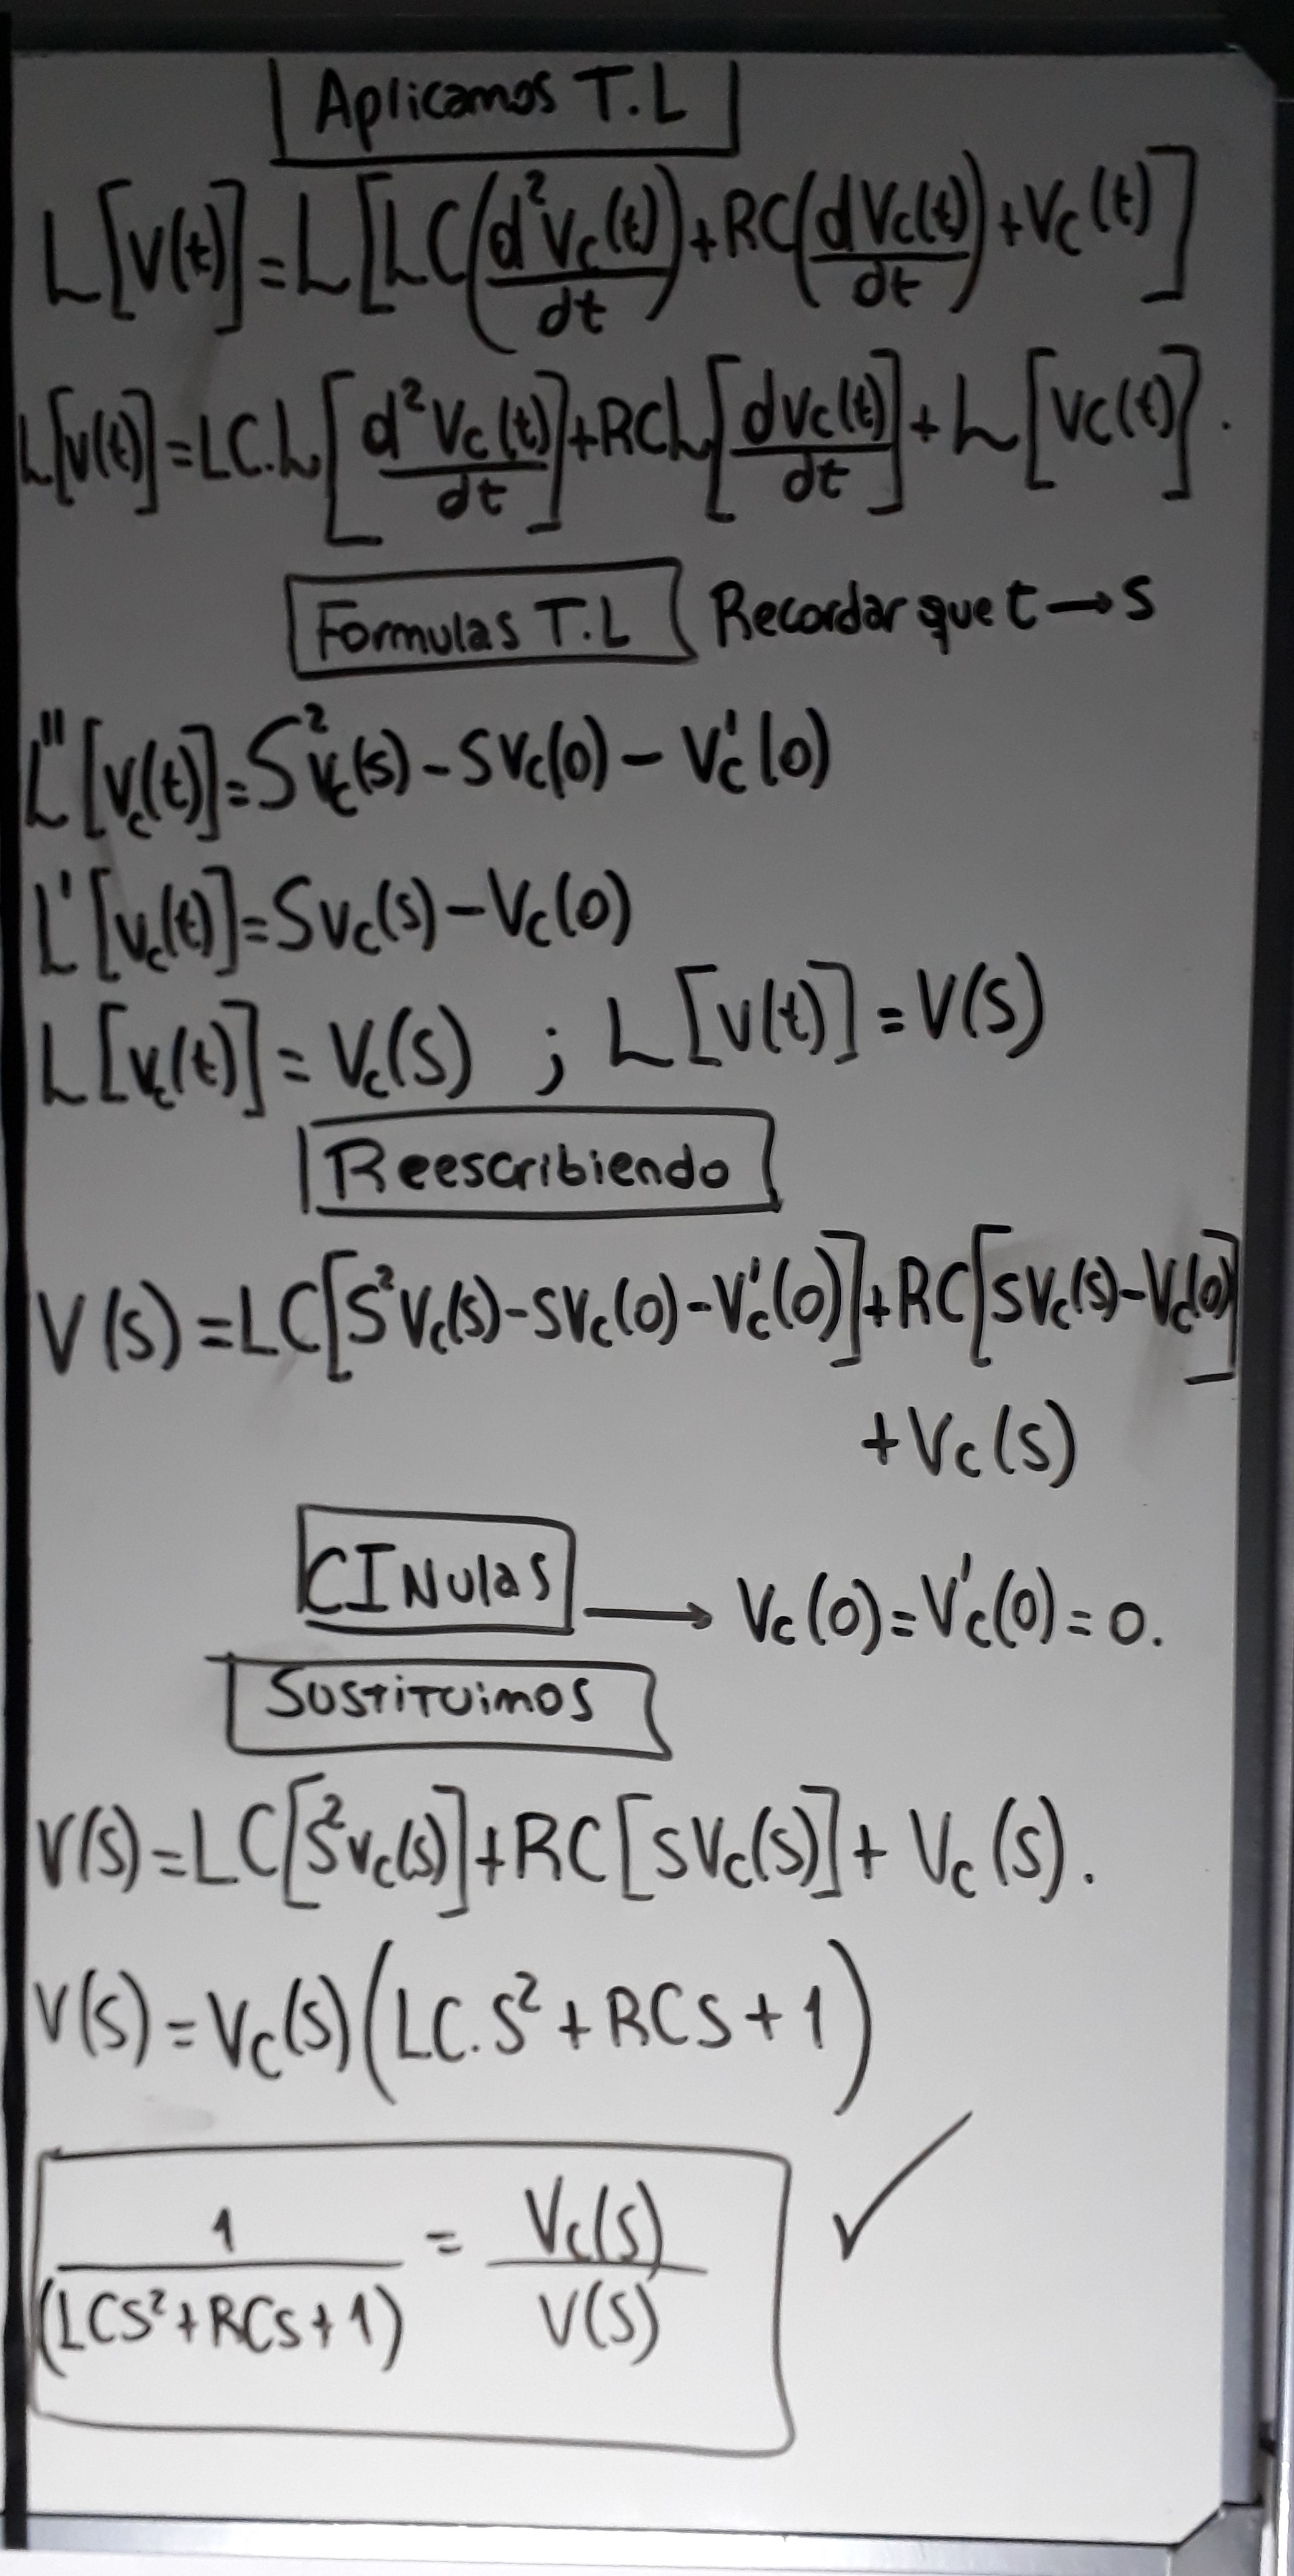 Aplicamos T.L
L[V(t)]=L[LC(d²Vc(t)/dt)+RC(dVc(t)/dt)+Vc(t)]
L[V(t)]=LC.L[d²Vc(t)/dt]+RCL[dVc(t)/dt]+L[Vc(t)].
Formulas T.L Recordar que t→s
L''[Vc(t)]=S²Vc(s)-SVc(0)-Vc'(0)
L'[Vc(t)]=SVc(s)-Vc(0)
L[Vc(t)]=Vc(S) ; L[V(t)]=V(S)
Reescribiendo
V(s)=LC[S²Vc(s)-SVc(0)-Vc'(0)]+RC[SVc(s)-Vc(0)]
+Vc(s)
CI Nulas → Vc(0)=Vc'(0)=0.
Sustituimos
V(s)=LC[S²Vc(s)]+RC[SVc(s)]+Vc(s).
V(s)=Vc(s)(LC.S²+RCS+1)
1/(LCS²+RCS+1) = Vc(s)/V(s) ✓